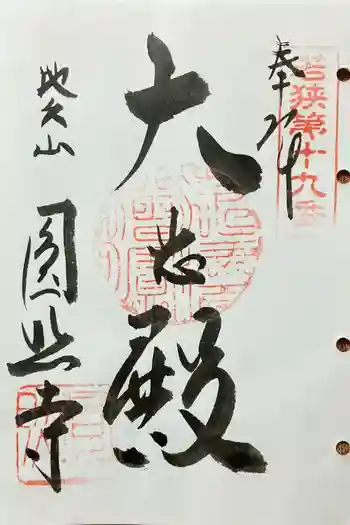 奉拝
若狭第十九番
大悲殿
地久山
圓照寺